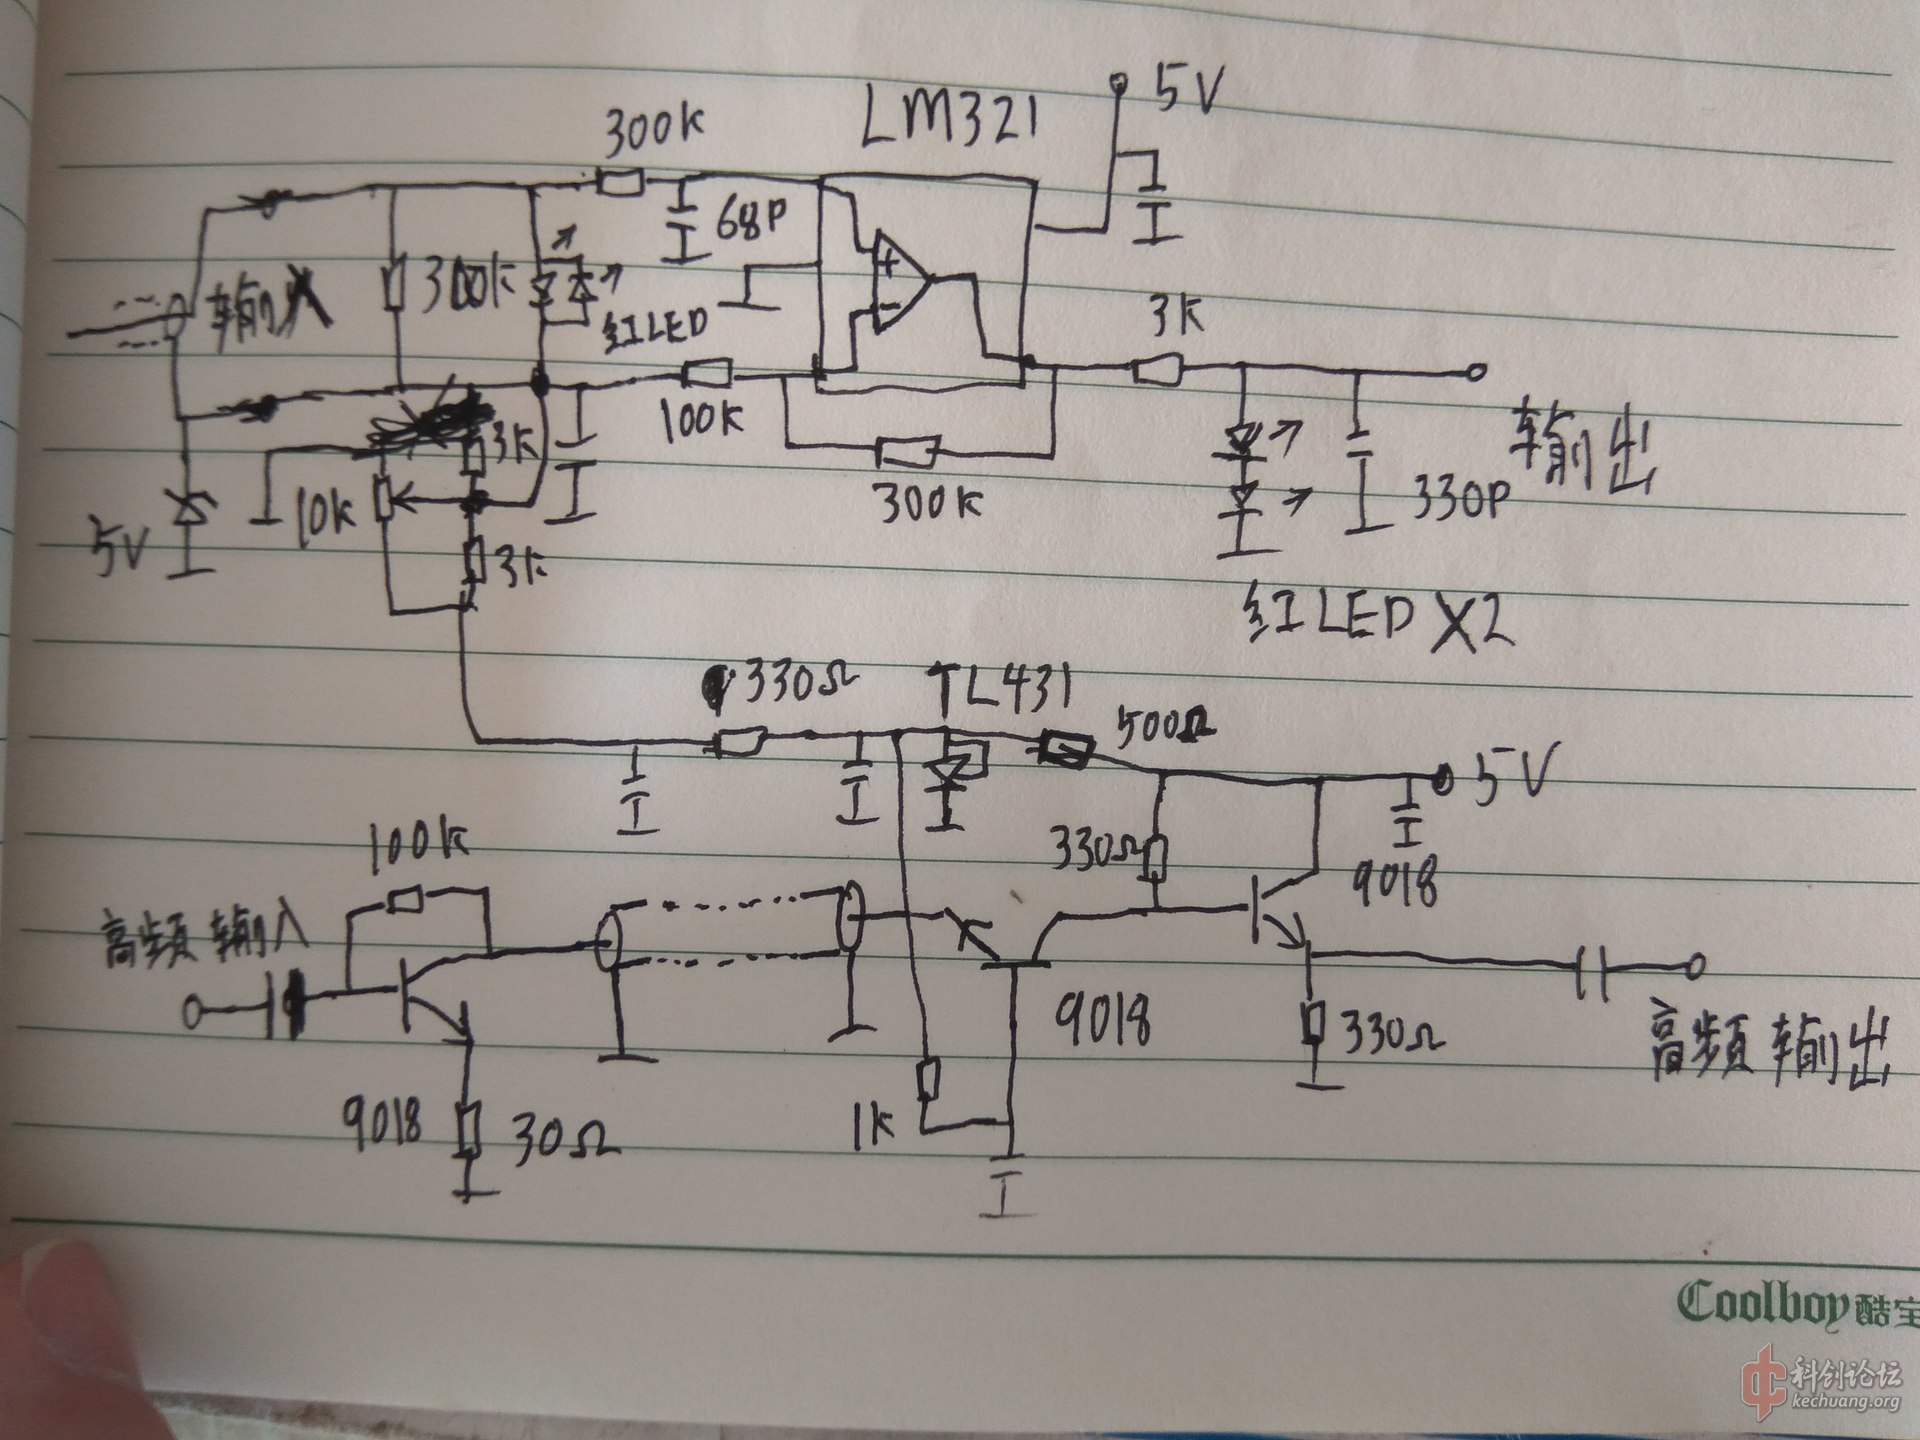 LM321
5V
300k
68P
输入
300k
红LED
3k
100k
3k
输出
10k
300k
330P
5V
3k
红LED X2
330Ω
TL431
500Ω
5V
100k
330Ω
9018
高频输入
9018
330Ω
高频输出
9018
30Ω
1k
Coolboy酷宝
科创论坛
kechuang.org